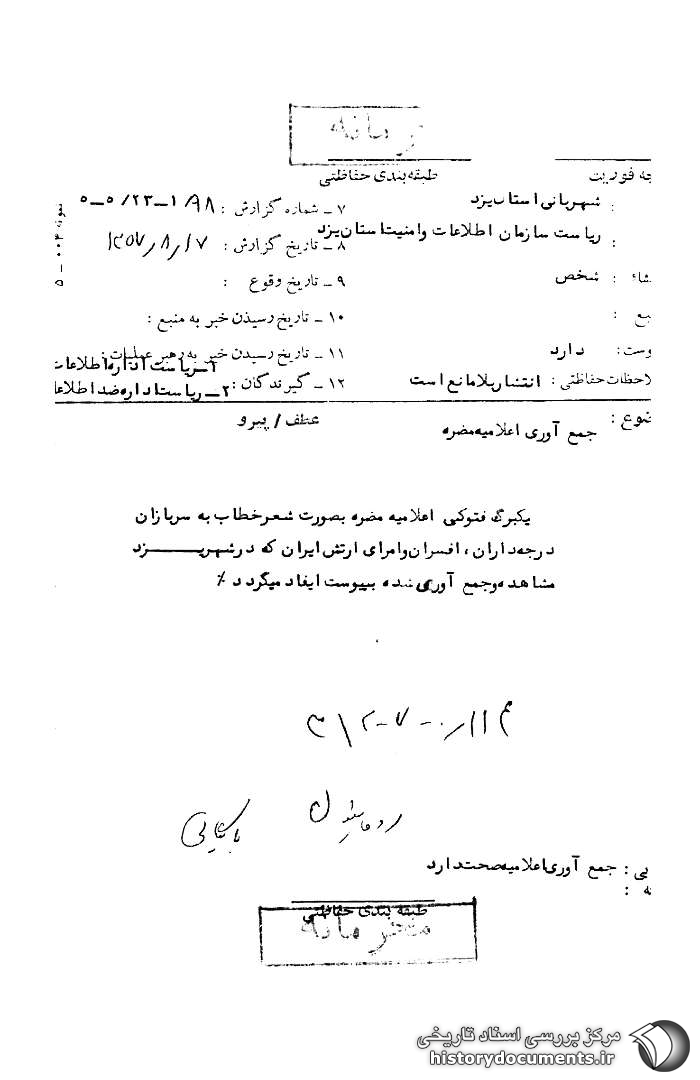 محرمانه
طبقه‌بندی حفاظتی
جه فوریت
: شهربانی استان یزد
۷ ـ شماره گزارش : ۵ـ۵/۲۳ـ۱/۹۸
: ریاست سازمان اطلاعات وامنیت استان یزد
۸ ـ تاریخ گزارش : ۱۳۵۷/۸/۱۷
شاء : شخص
۹ ـ تاریخ وقوع :
بع :
۱۰ ـ تاریخ رسیدن خبر به منبع :
وست : دارد
۱۱ ـ تاریخ رسیدن خبر به رهبر عملیات :
۱ـ ریاست اداره اطلاعات
لاحظات حفاظتی : انتشار بلامانع است
۱۲ ـ گیرندگان : ۲ ـ ریاست اداره ضد اطلاعا
نمونه ۰۰۳ ـ ۵
ضوع : جمع آوری اعلامیه مضره
عطف / پیرو
یکبرگ فتوکپی اعلامیه مضره بصورت شعر خطاب به سربازان
درجه‌داران ، افسران وامرای ارتش ایران که در شهر یـزد
مشاهده و جمع آوری شده بپیوست ایفاد میگردد ٪
بی : جمع آوری اعلامیه صحت دارد
ه :
طبقه بندی حفاظتی
محرمانه
مرکز بررسی اسناد تاریخی
historydocuments.ir